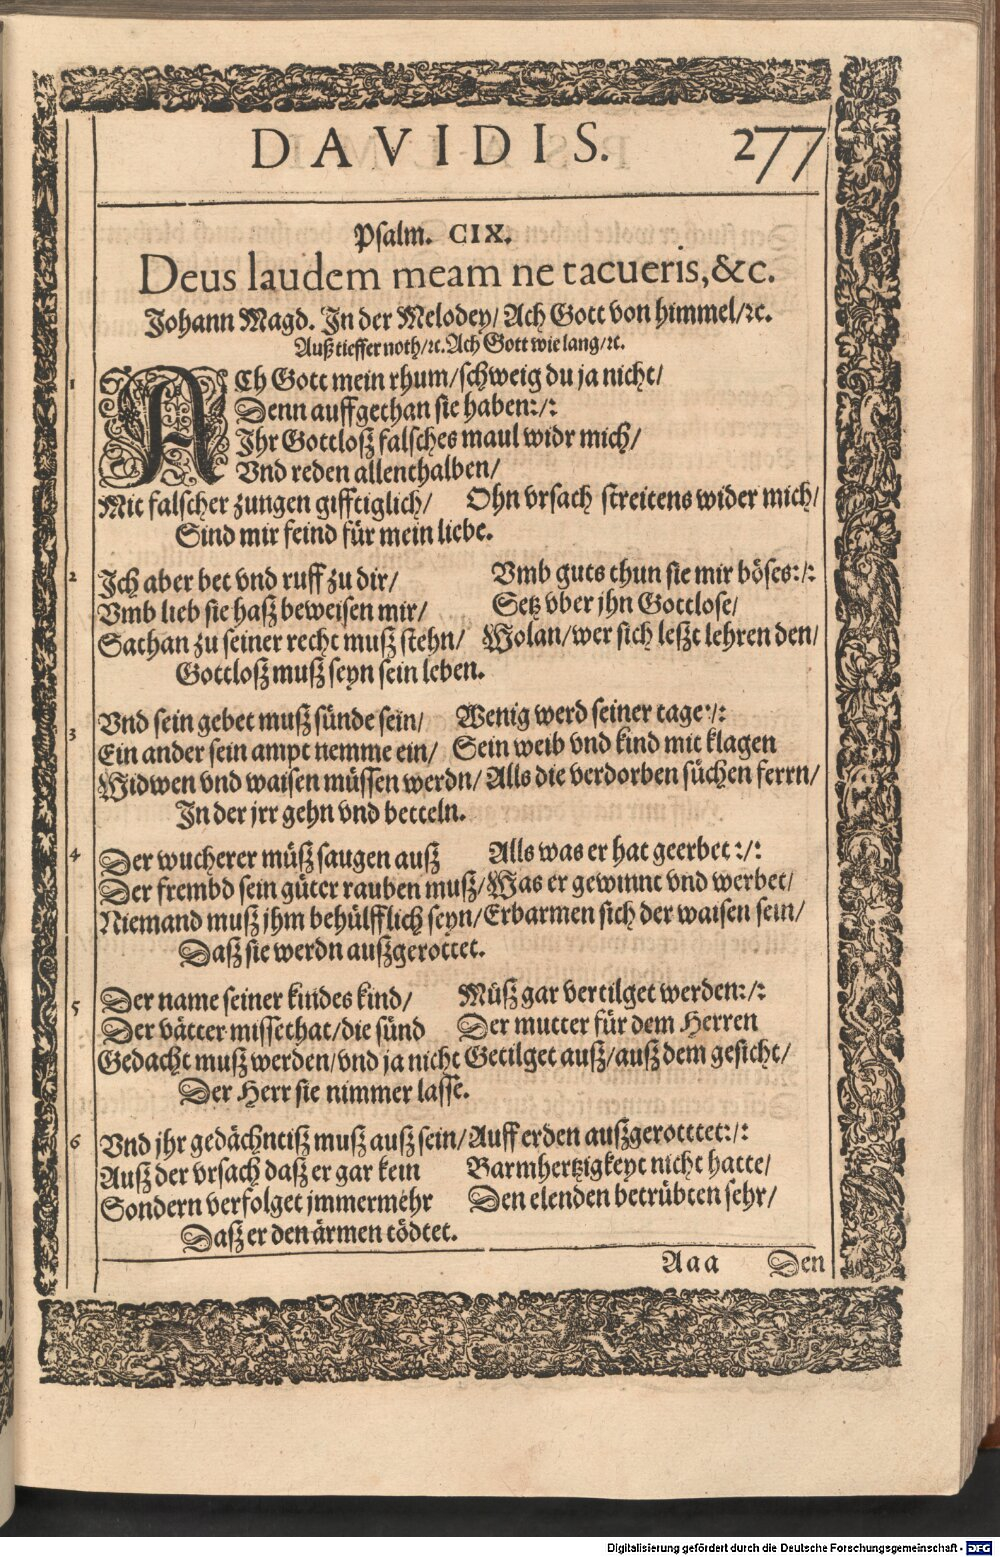 DAVIDIS. 277
Psalm. CIX.
Deus laudem meam ne tacueris, &c.
Johann Magd. In der Melodey/ Ach Gott von himmel/ꝛc.
Auß tieffer noth/ꝛc. Ach Gott wie lang/ꝛc.
1 ACh Gott mein rhum/ schweig du ja nicht/
Denn auffgethan sie haben:/:
Ihr Gottloß falsches maul widr mich/
Vnd reden allenthalben/
Mit falscher zungen gifftiglich/ Ohn vrsach streitens wider mich/
Sind mir feind für mein liebe.
2 Ich aber bet vnd ruff zu dir/ Vmb guts thun sie mir böses:/:
Vmb lieb sie haß beweisen mir/ Setz vber jhn Gottlose/
Sathan zu seiner recht muß stehn/ Wolan/ wer sich leßt lehren den/
Gottloß muß seyn sein leben.
3 Vnd sein gebet muß sünde sein/ Wenig werd seiner tage:/:
Ein ander sein ampt nemme ein/ Sein weib vnd kind mit klagen
Widwen vnd waisen müssen werdn/ Alls die verdorben süchen ferrn/
In der jrr gehn vnd betteln.
4 Der wucherer müß saugen auß Alls was er hat geerbet:/:
Der frembd sein güter rauben muß/ Was er gewinnt vnd werbet/
Niemand muß jhm behülfflich seyn/ Erbarmen sich der waisen sein/
Daß sie werdn außgerottet.
5 Der name seiner kindes kind/ Müß gar vertilget werden:/:
Der vätter missethat/ die sünd Der mutter für dem Herren
Gedacht muß werden/ vnd ja nicht Getilget auß/ auß dem gesicht/
Der Herr sie nimmer lasse.
6 Vnd jhr gedächntiß muß auß sein/ Auff erden außgerotttet:/:
Auß der vrsach daß er gar kein Barmhertzigkeyt nicht hatte/
Sondern verfolget jmmermehr Den elenden betrübten sehr/
Daß er den ärmen tödtet.
Aaa Den
Digitalisierung gefördert durch die Deutsche Forschungsgemeinschaft - DFG